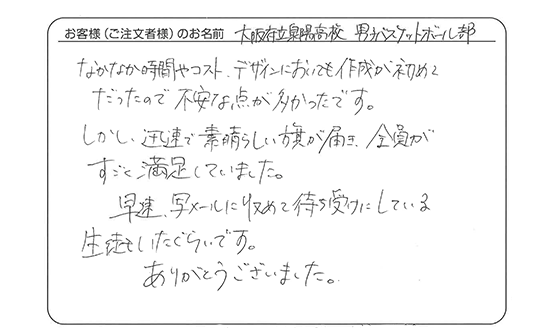 お客様（ご注文者様）のお名前 大阪府立泉陽高校 男子バスケットボール部
なかなか時間やコスト、デザインにおいても作成が初めて
だったので不安な点が多かったです。
しかし、迅速で素晴らしい旗が届き、全員が
すごく満足していました。
早速、写メールに収めて待ち受けにしている
生徒もいたぐらいです。
ありがとうございました。